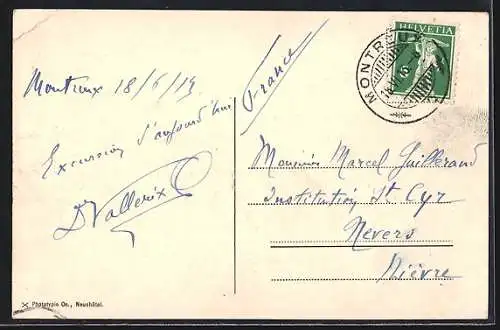 HELVETIA
MONTREUX
France
Montreux 18/6/15
Excursion d'aujourd'hui
D Vallerix
Monsieur Marcel Guillerand
Institution St Cyr
Nevers
Nièvre
Phototypie Co., Neuchâtel.